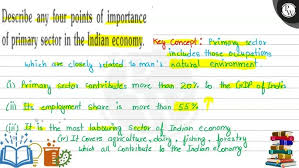 Describe any four points of importance
of primary sector in the Indian economy.
Key Concept: Primary sector
includes those occupations
which are closely related to man's natural environment
(i) Primary sector contributes more than 20% to the GDP of India
(ii) Its employment share is more than 55%
(iii) It is the most labouring sector of Indian economy
(iv) It covers agriculture, dairy, fishing, forestry
which all contribute to the Indian economy